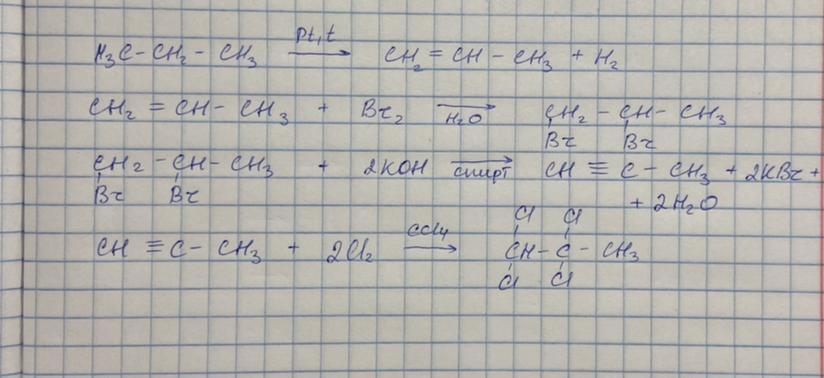 H₃C-CH₂-CH₃ Pt,t → CH₂=CH-CH₃ + H₂
CH₂=CH-CH₃ + Br₂ → H₂O CH₂-CH-CH₃
Br Br
CH₂-CH-CH₃ + 2KOH → спирт CH≡C-CH₃ + 2KBr +
Br Br + 2H₂O
Cl Cl
CH≡C-CH₃ + 2Cl₂ CCl₄ → CH-C-CH₃
Cl Cl